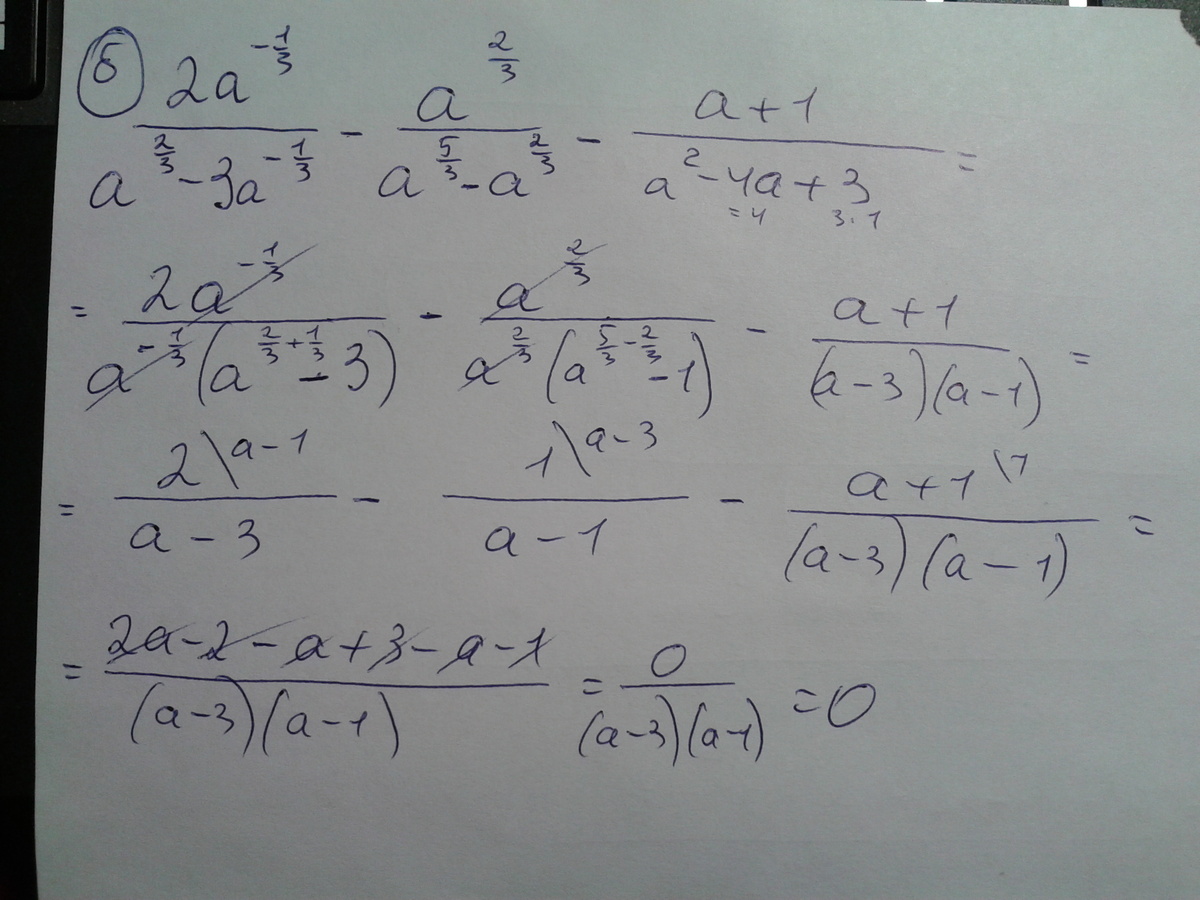 б) 2a^(-1/3) / (a^(2/3) - 3a^(-1/3)) - a^(2/3) / (a^(5/3) - a^(2/3)) - (a+1) / (a² - 4a + 3) =
=4 3·1
= 2a^(-1/3) / (a^(-1/3)(a^(2/3+1/3) - 3)) - a^(2/3) / (a^(2/3)(a^(5/3-2/3) - 1)) - (a+1) / ((a-3)(a-1)) =
= 2\a-1 / (a-3) - 1\a-3 / (a-1) - a+1\1 / ((a-3)(a-1)) =
= (2a-2-a+3-a-1) / ((a-3)(a-1)) = 0 / ((a-3)(a-1)) = 0